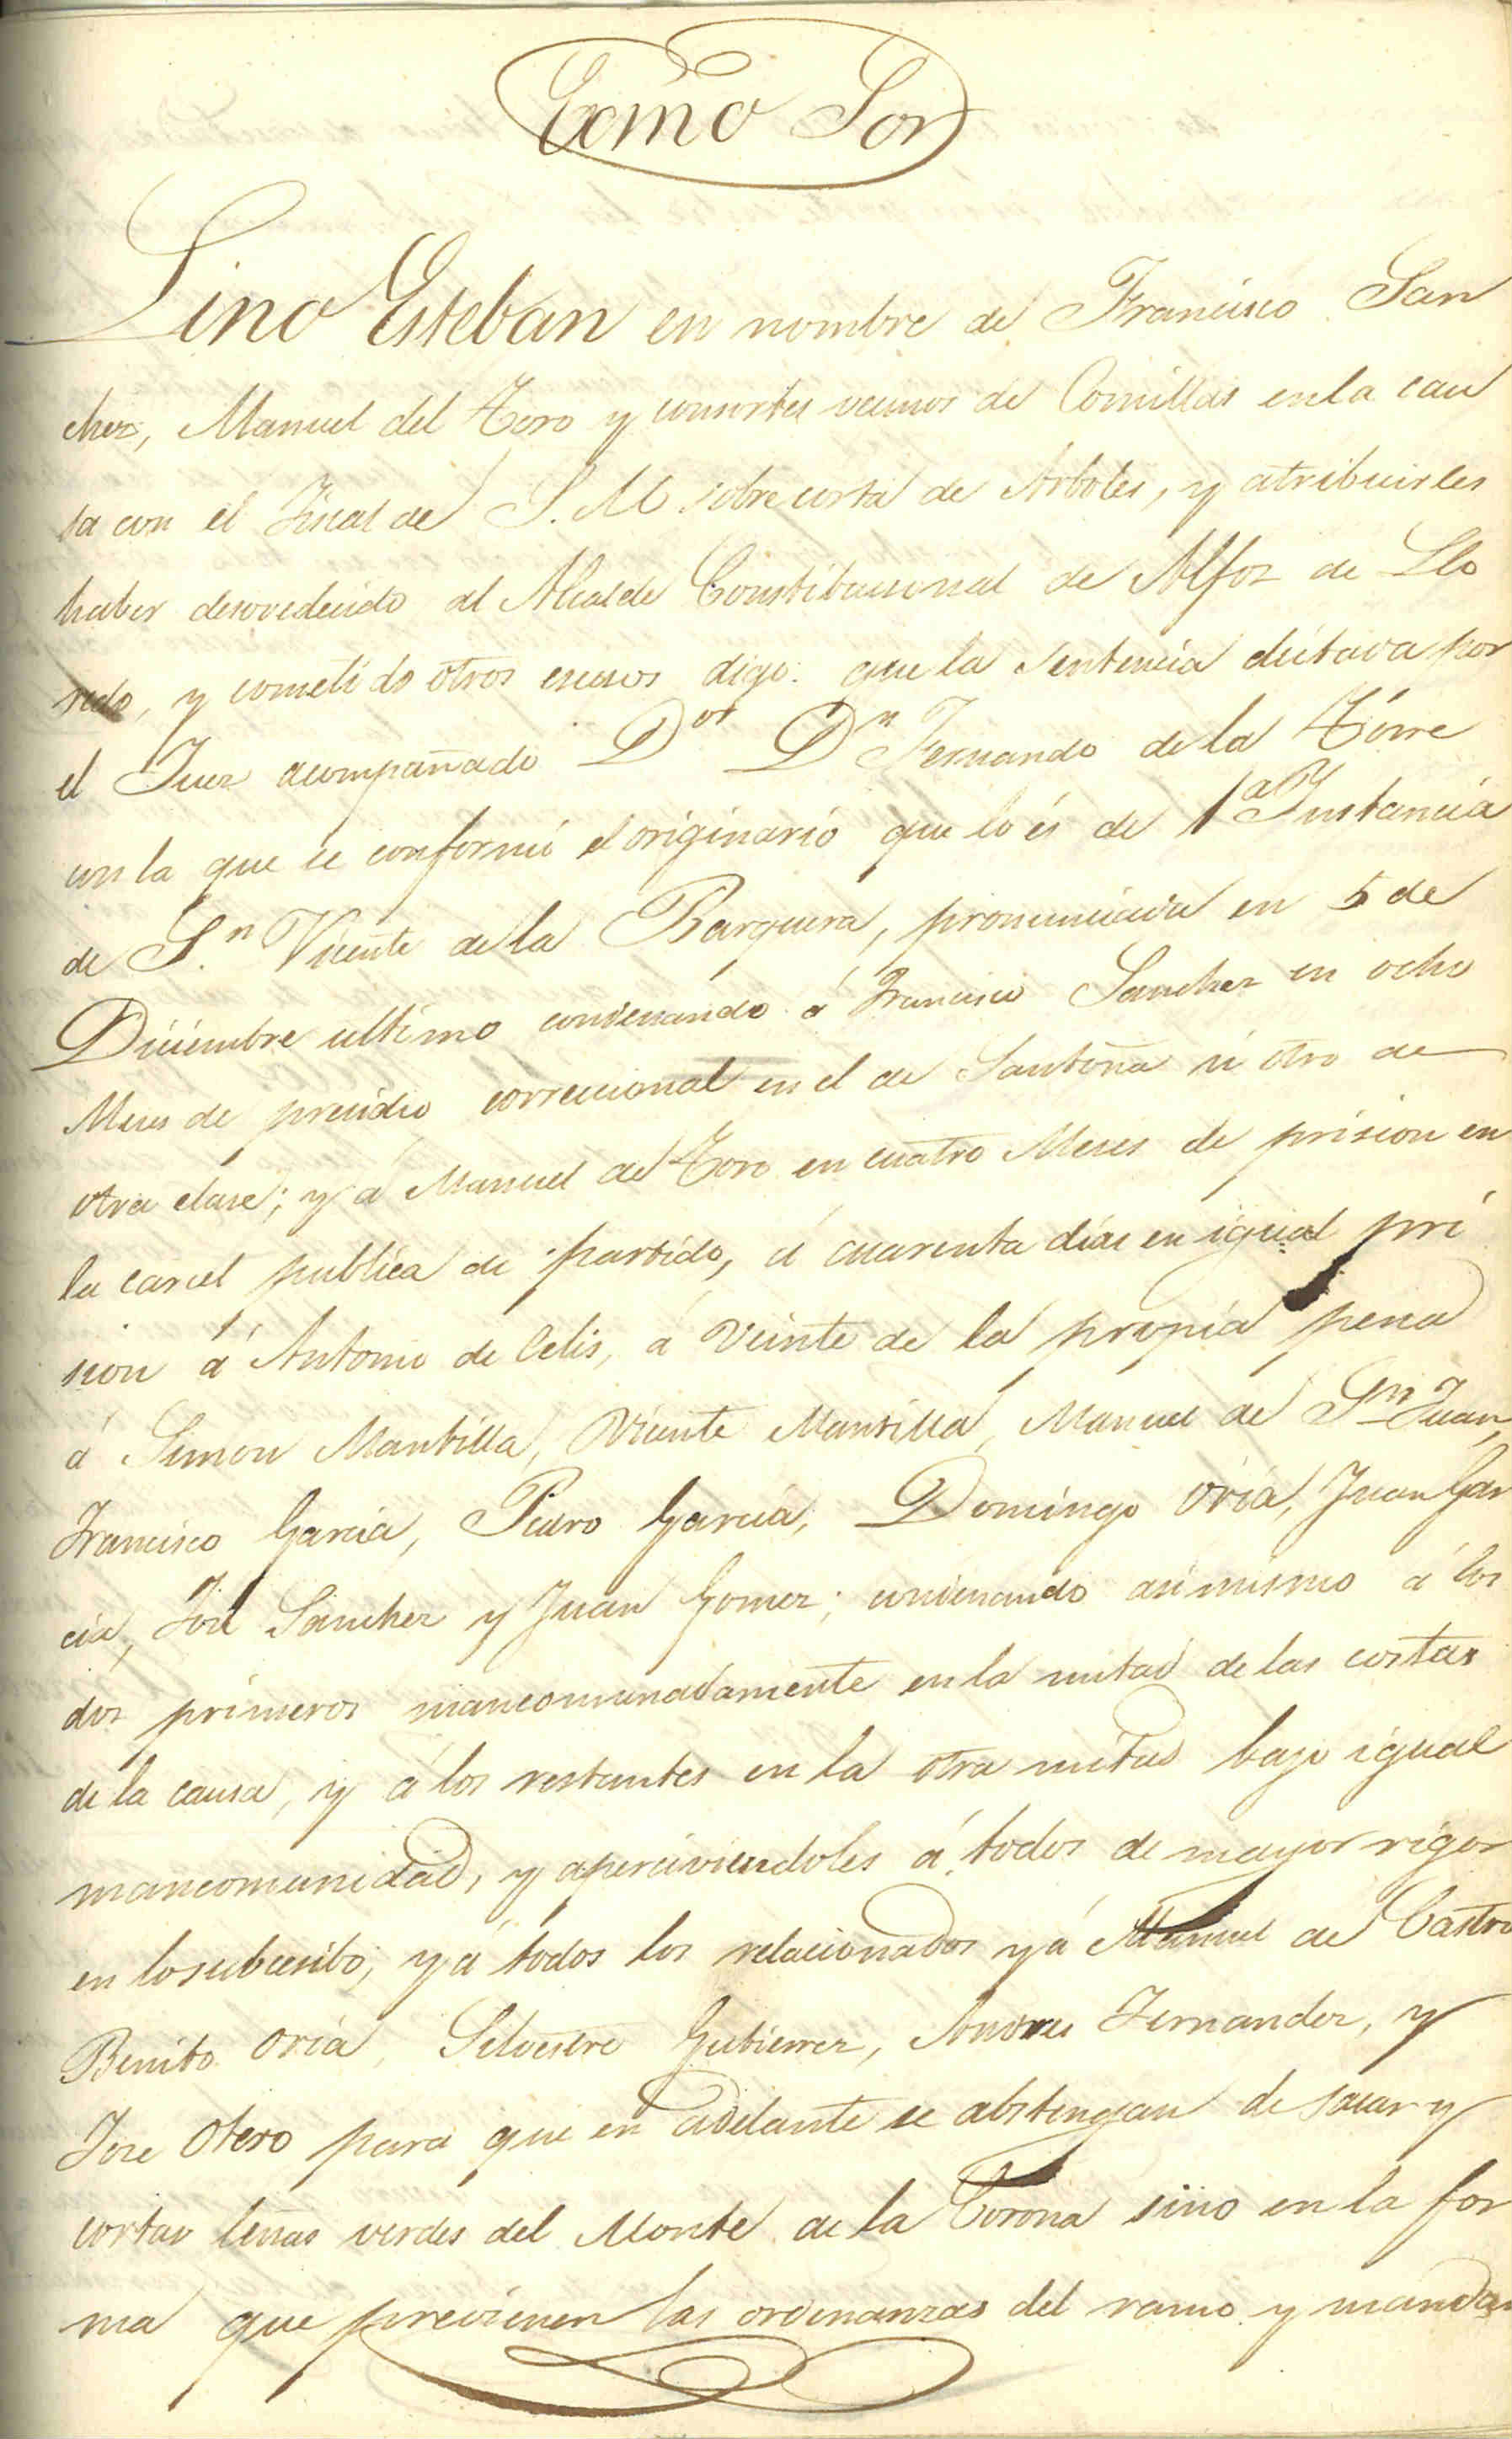 Exmo Sor
Lino Esteban en nombre de Francisco San
chez, Manuel del Toro y consortes vecinos de Comillas en la cau
sa con el Fiscal de S. M. sobre corta de Arboles, y atribuirles
haber desovedecido al Alcalde Constitucional de Alfoz de Llo
redo, y cometido otros escesos digo: que la Sentencia dictava por
el Juez acompañado Dor Dn Fernando de la Torre
con la que se conformó el originario que lo és de 1a Instancia
de Sn Vicente de la Barquera, pronunciada en 5 de
Diciembre ultimo condenando á Francisco Sanchez en ocho
Meses de presidio correccional en el de Santoña ú otro de
otra clase; y á Manuel de Toro en cuatro Meses de prision en
la carcel publica de partido, á cuarenta días en igual pri
sion á Antonio de Celis, á veinte de la propia pena
á Simon Mantilla, Vicente Mantilla, Manuel de Sn Juan,
Francisco Garcia, Pedro Garcia, Domingo Oria, Juan Gar
cia, José Sanchez y Juan Gomez; condenando asimismo á los
dos primeros mancomunadamente en la mitad de las costas
de la causa, y á los restantes en la otra mitad bajo igual
mancomunidad, y aperciviendoles á todos de mayor rigor
en lo subcesibo; y á todos los relacionados y á Manuel de Castro
Benito Oria, Silvestre Gutierrez, Andres Fernandez, y
Jose Otero para que en adelante se abstengan de sacar y
cortar leñas verdes del Monte de la Corona sino en la for
ma que previenen las ordenanzas del ramo y mandan